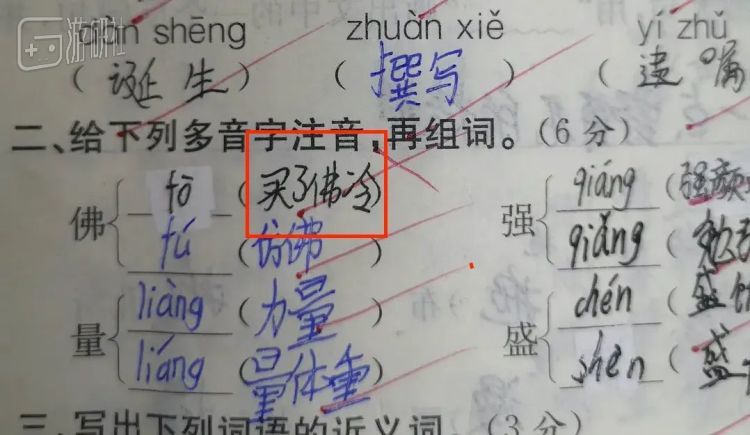 游研社
dàn shēng zhuàn xiě yí zhǔ
(诞生) (撰写) (遗嘱
二、给下列多音字注音,再组词。(6分)
佛 fó (买了佛冷) 强 qiáng (强颜
fú (仿佛) qiǎng (勉强
量 liàng (力量) 盛 chén (盛饭
liáng (量体重) shèn (盛
三、写出下列词语的近义词。(3分)